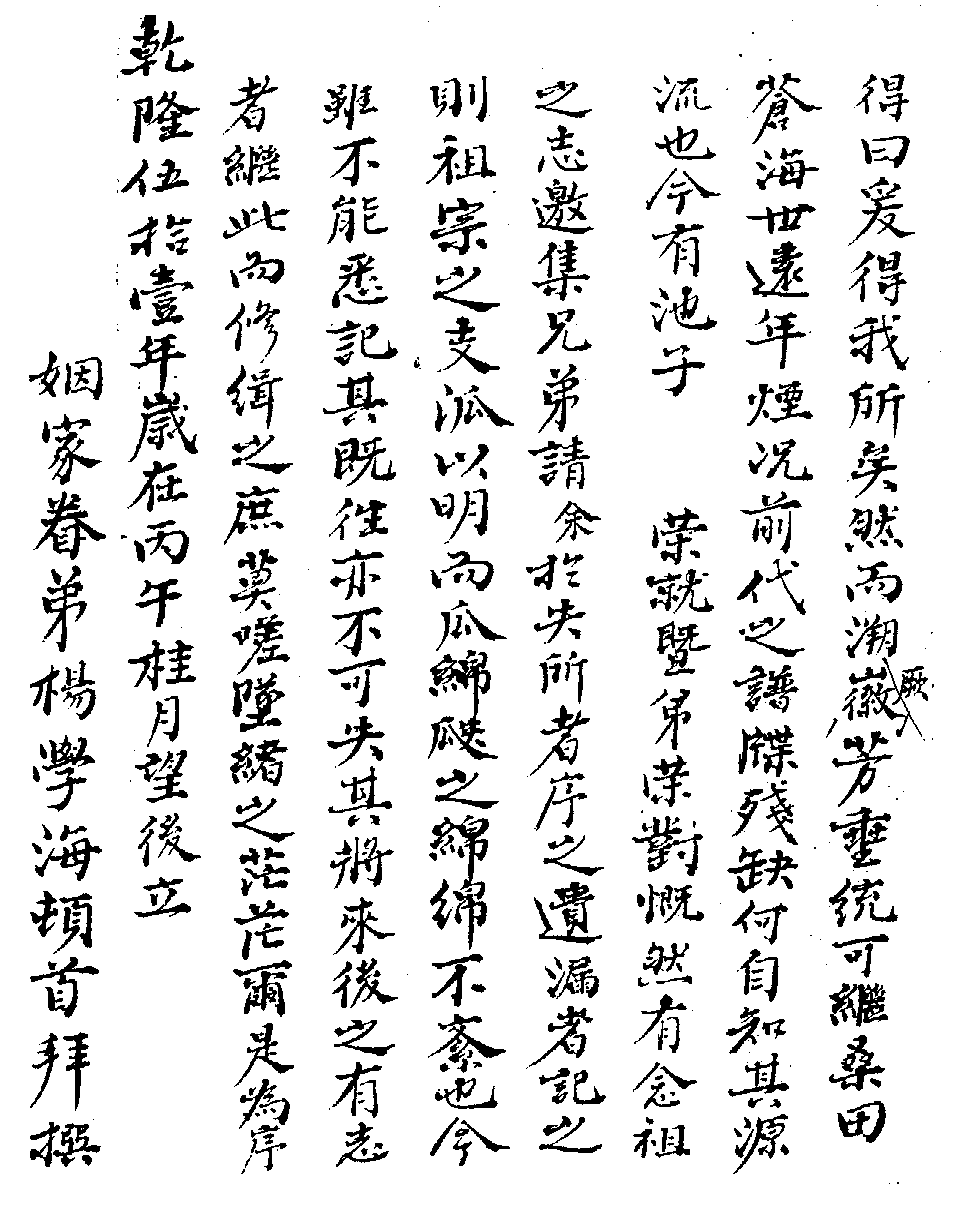 得曰爰得我所矣然而溯徽厥芳垂统可繼桑田
蒼海世遠年煙况前代之譜牒殘缺何自知其源
流也今有池子　荣就暨弟荣對慨然有念祖
之志邀集兄弟請余於失所者序之遺漏者記之
則祖宗之支派以明而瓜綿瓞之綿綿不紊也今
雖不能悉記其既徃亦不可失其將來後之有志
者繼此而修緝之庶莫嗟墜緒之茫茫爾是為序
乾隆伍拾壹年歲在丙午桂月望後立
姻家眷弟楊學海頓首拜撰